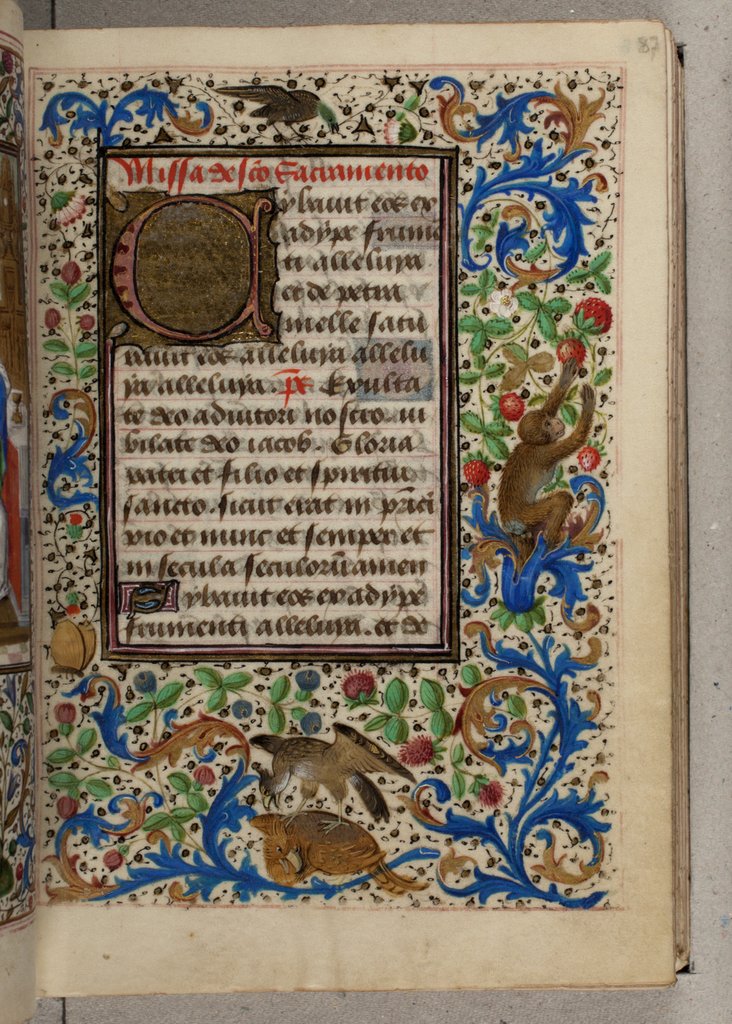 87
Missa de sco Sacramento
Cybauit eos ex
adype frume
ti alleluya
et de petra
melle satu
rauit eos alleluya allelu
ya alleluya. ps. Exulta
te deo adiutori nostro iu
bilate deo iacob. Gloria
patri et filio et spiritui
sancto. sicut erat in prici
pio et nunc et semper et
in secula seculorū amen
Cybauit eos ex adype
frumenti alleluya. et de